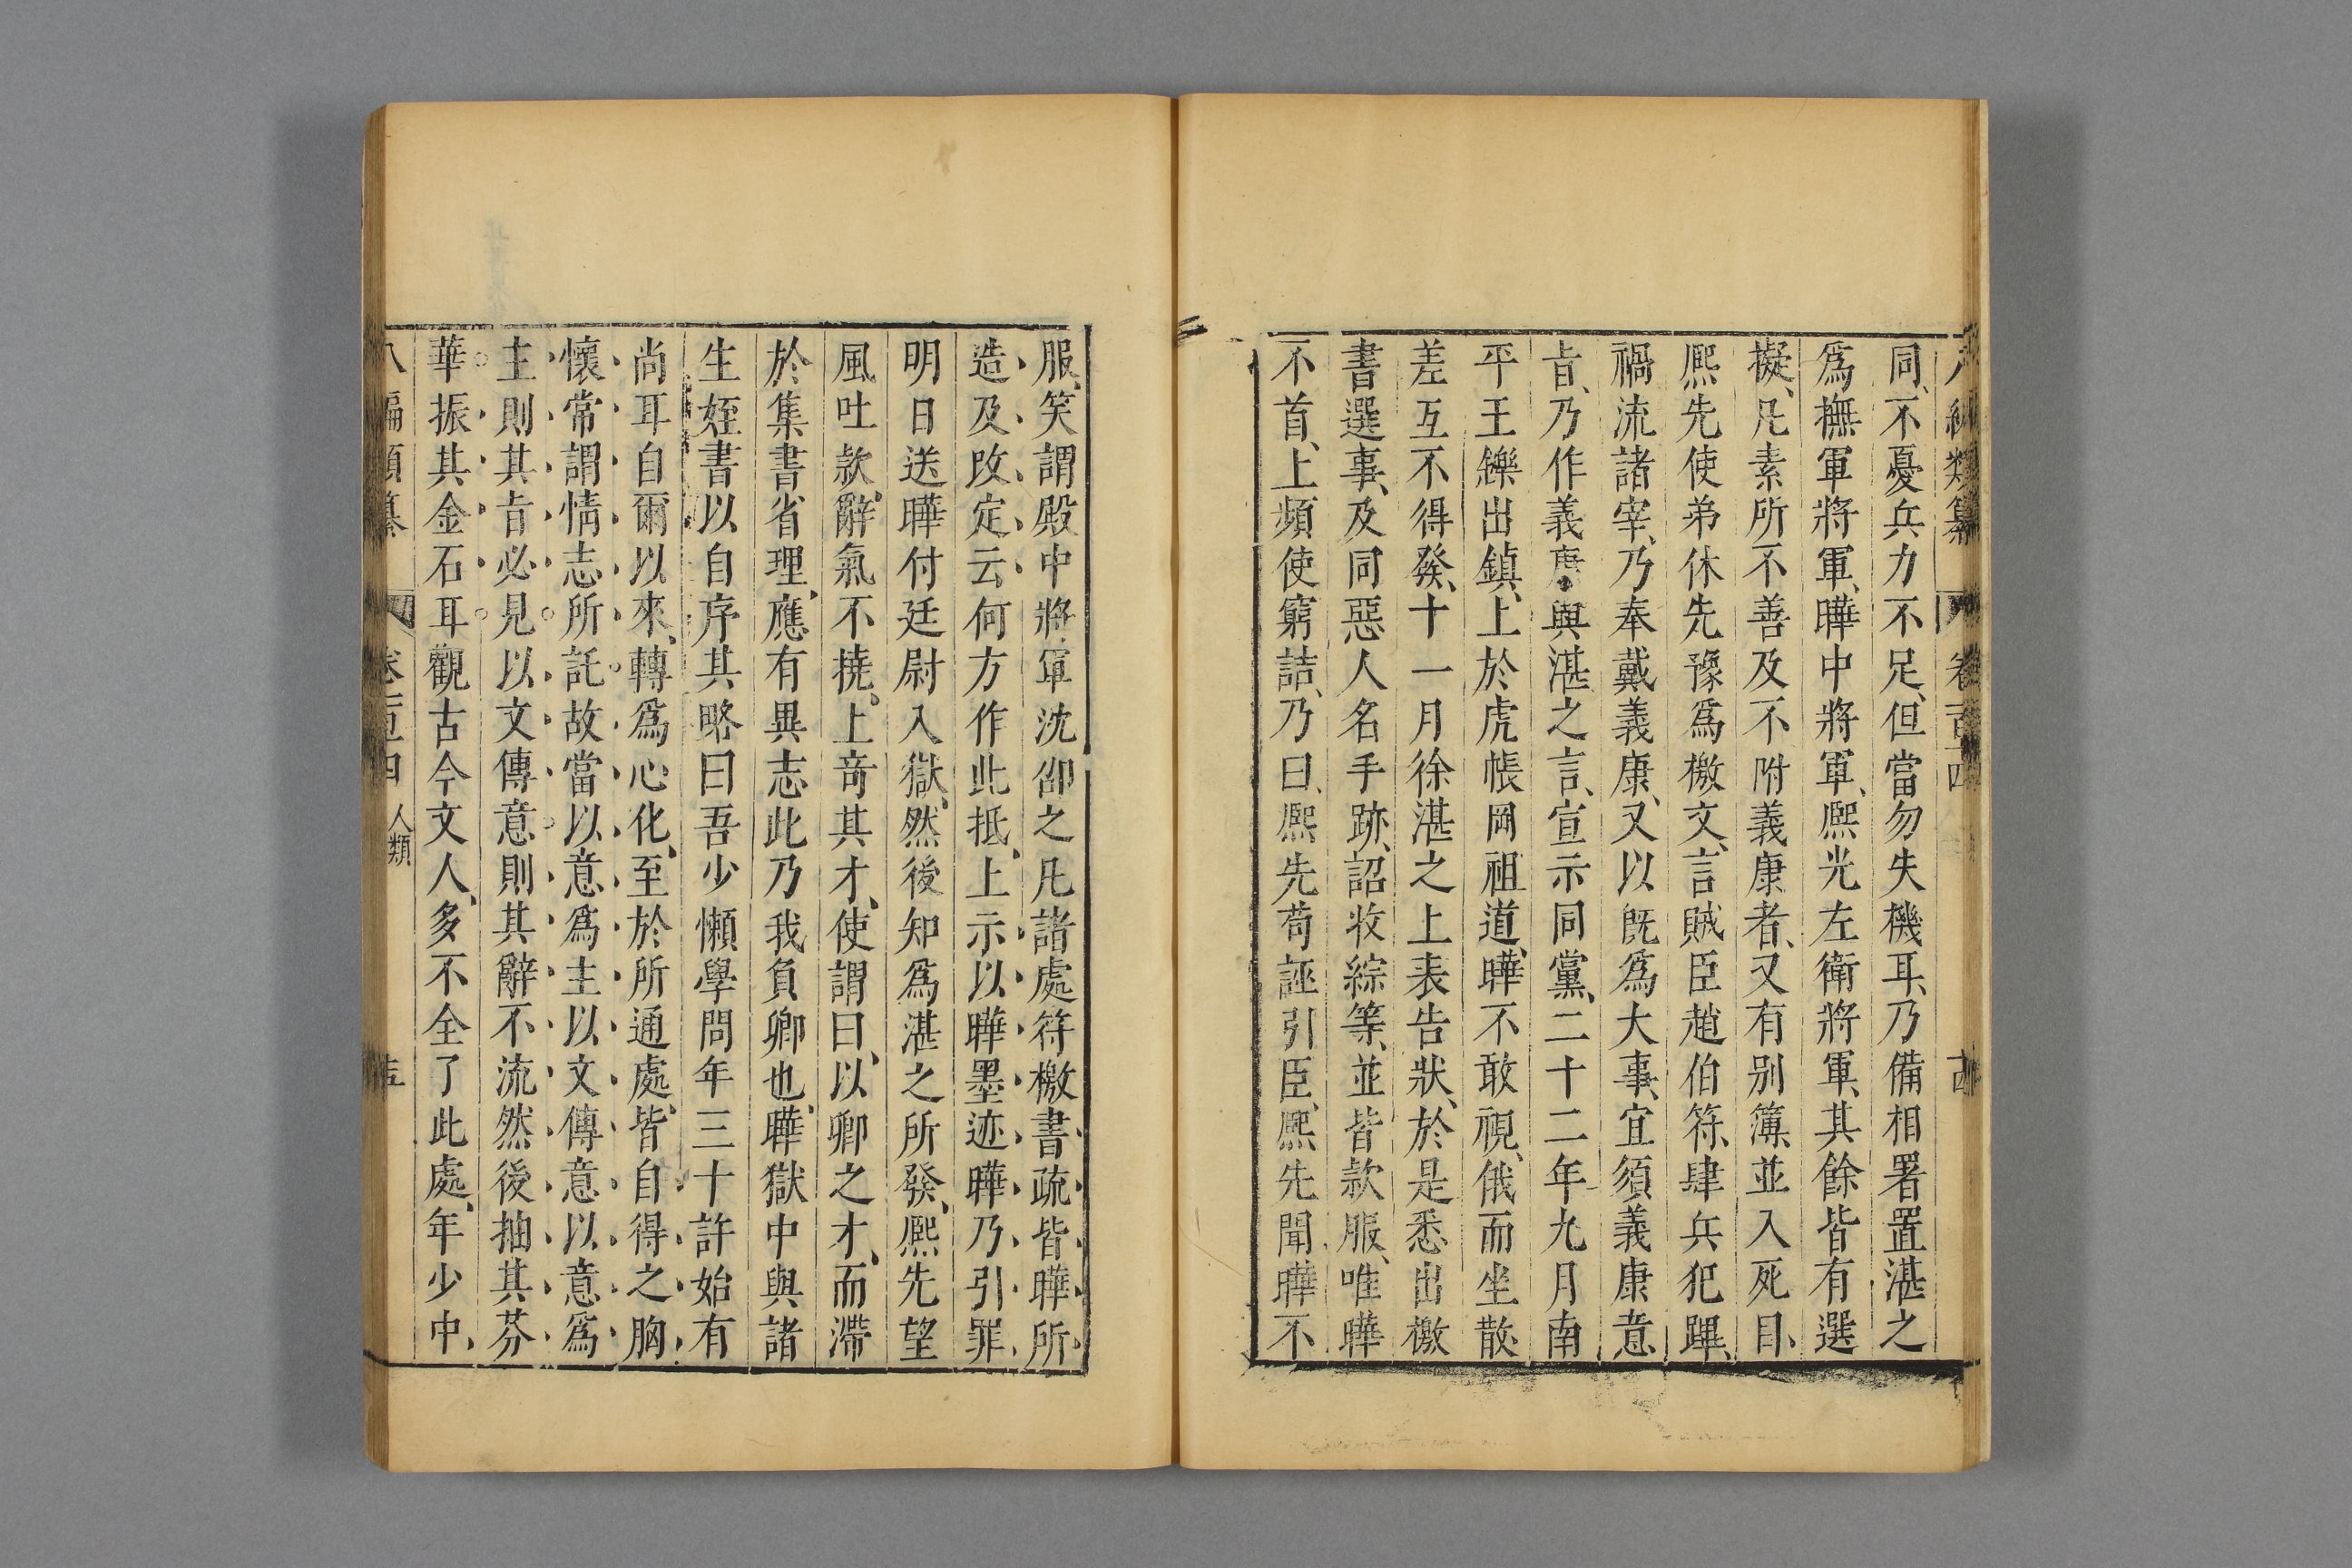 八編類纂 卷百十四 十四
同、不憂兵力不足、但當勿失機耳、乃備相署置湛之
爲撫軍將軍、曄中將軍、熈光左衛將軍、其餘皆有選
擬、凡素所不善及不附義康者、又有别簿、並入死目、
熈先使弟休先豫爲檄文、言賊臣趙伯符、肆兵犯蹕、
禍流諸宰、乃奉戴義康、又以旣爲大事、宜須義康意
㫖、乃作義康與湛之言、宣示同黨、二十二年九月南
平王鑠出鎮、上於虎帳岡祖道、曄不敢視、俄而坐散
差互不得發、十一月徐湛之上表告狀、於是悉出檄
書選事、及同惡人名手跡、詔收綜等、並皆款服、唯曄
不首、上頻使窮詰、乃曰、熈先苟誣引臣、熈先聞曄不
服、笑謂殿中將軍沈邵之凡諸處符檄書疏皆曄所
造及改定云何方作此抵、上示以曄墨迹曄乃引罪
明日送曄付廷尉入獄、然後知爲湛之所發、熈先望
風吐款、辭氣不撓、上竒其才、使謂曰、以卿之才、而滯
於集書省理、應有異志此乃我負卿也、曄獄中與諸
生姪書以自序其略曰吾少懶學問年三十許始有
尚耳自爾以來、轉爲心化、至於所通處、皆自得之胸
懷常謂情志所託故當以意爲主以文傳意以意爲
主則其㫖必見以文傳意則其辭不流然後抽其芬
華振其金石耳觀古今文人、多不全了此處、年少中、
八編類纂 卷一百十四 人類 十五